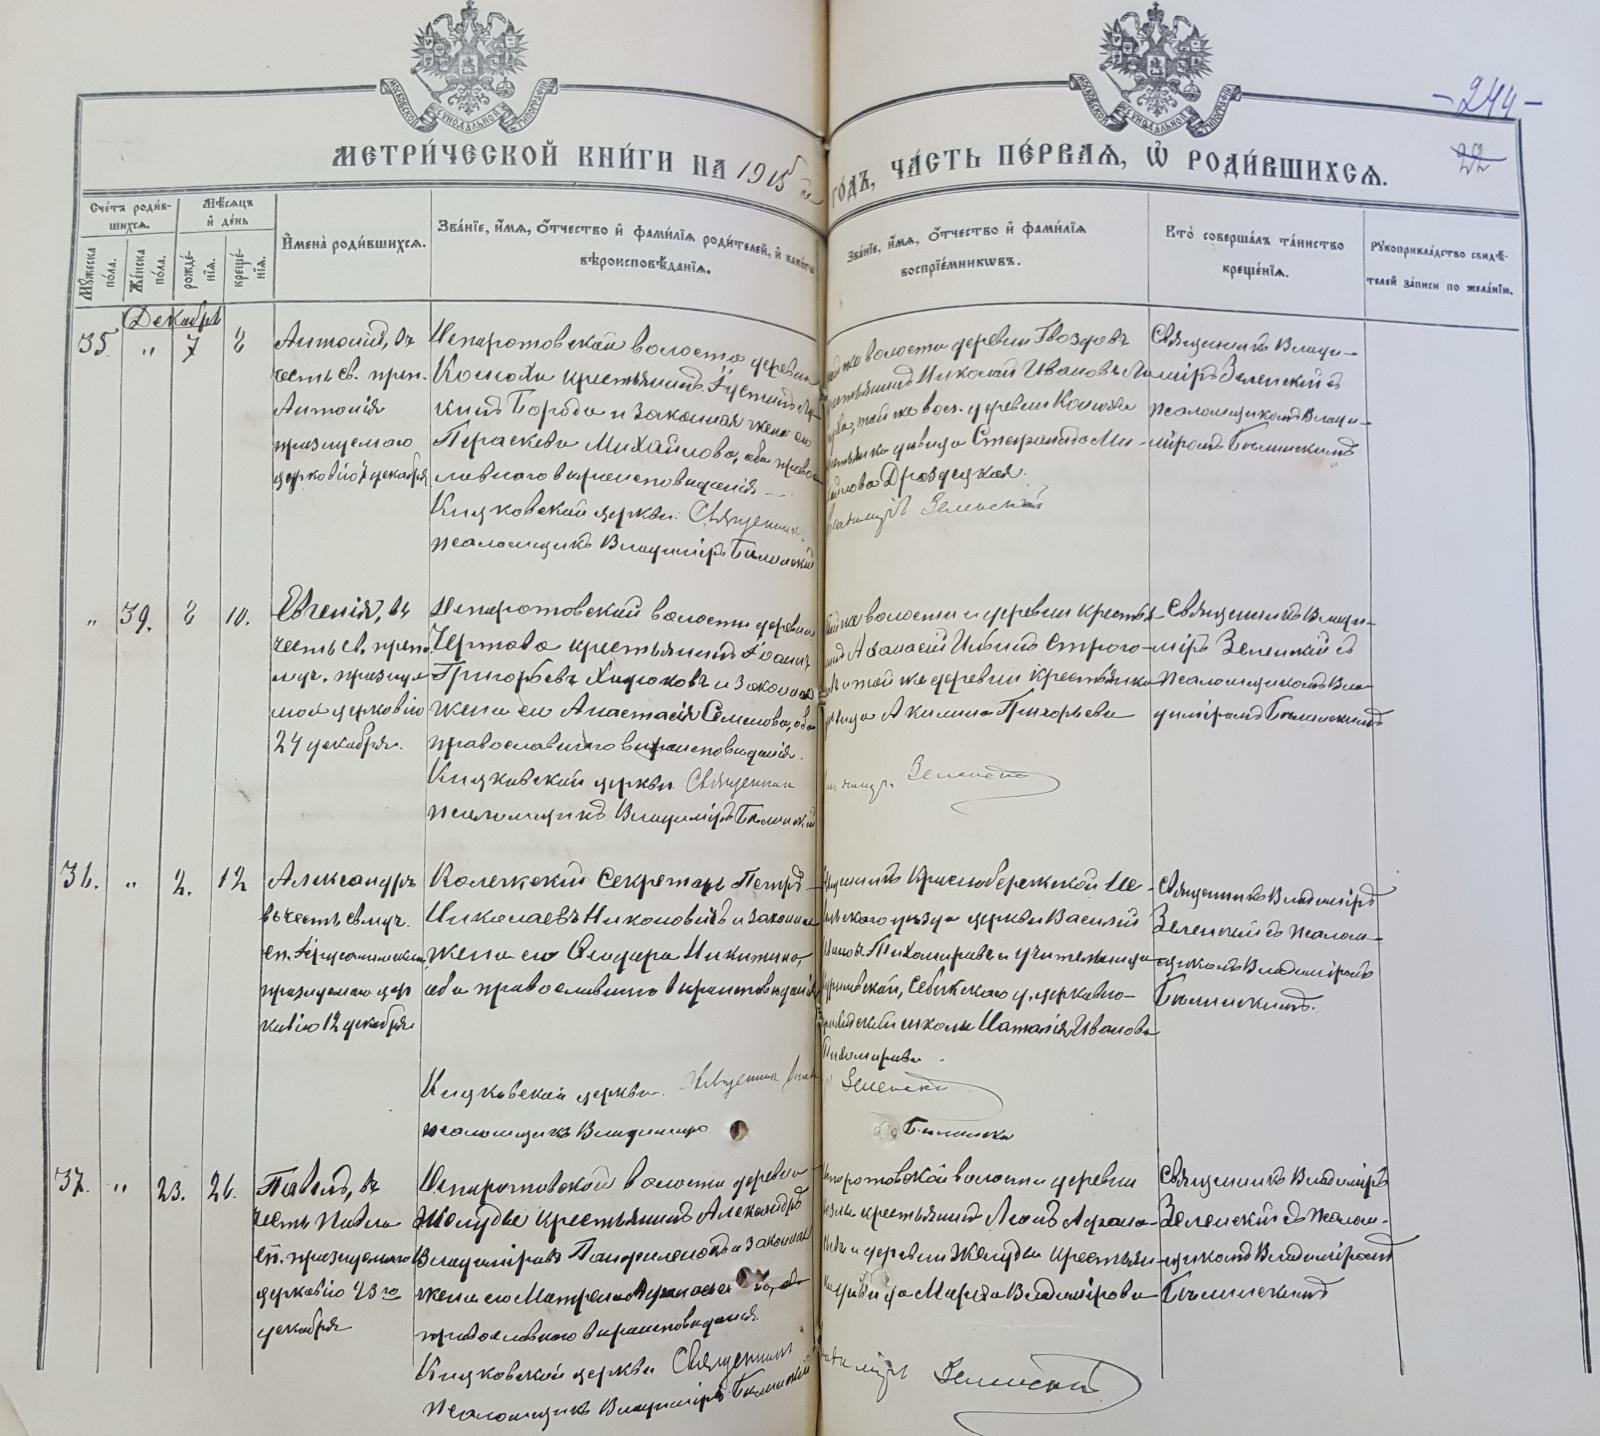 МОСКОВСКОЙ СѴНОДАЛЬНОЙ ТИПОГРАФІИ
МОСКОВСКОЙ СѴНОДАЛЬНОЙ ТИПОГРАФІИ
-244-
22
МЕТРИ́ЧЕСКОЙ КНИ́ГИ НА 1915
ГО́ДЪ, ЧА́СТЬ ПЕ́РВАѦ, Ѡ҆ РОДИ́ВШИХСѦ.
Сче́тъ роди́в-
шихсѧ.
Мѣ́сѧцъ
и҆ де́нь
Мꙋ́жеска
по́ла.
Же́нска
по́ла.
рожде́-
нїѧ.
креще́-
нїѧ.
И҆мена̀ роди́вшихсѧ.
Зва́нїе, и҆́мѧ, ѻ҆́тчество и҆ фами́лїѧ роди́телей, и҆ како́гѡ
вѣроисповѣ́данїѧ.
Зва́нїе, и҆́мѧ, ѻ҆́тчество и҆ фами́лїѧ
воспрїе́мникѡвъ.
Кто̀ соверша́лъ та́инство
креще́нїѧ.
Рꙋкоприкла́дство свидѣ́-
телей за́писи по жела́нїю.
Декабрь
35. " 7 8
Антоній, въ
честь св. преп.
Антонія
празднуемаго
церковію 7 декабря
Непоротовской волости деревни
Конюхи крестьянинъ Іустинъ
Борода и законная жена его
Параскева Михайлова, оба право
славнаго вѣроисповѣданія
Кицковской церкви: Священник
псаломщикъ Владиміръ Билинскій
же волости деревни Гвоздовъ
Николай Ивановъ
той же вол. деревни Конюхи
дѣвица Стефанида Ми-
хайлова Дроздецкая.
Владиміръ Зеленскій
Священникъ Влади-
міръ Зеленскій съ
псаломщикомъ Влади-
міромъ Билинскимъ
" 39. 8 10.
Евгенія, въ
честь св. преп.
муч. празднуе
мой церковію
24 декабря.
Непоротовской волости деревни
Чертова крестьянинъ Іоаннъ
Григорьевъ Хидюковъ и законная
жена его Анастасія Семенова, оба
православнаго вѣроисповѣданія.
Кицковской церкви Священник
псаломщикъ Владиміръ Билинскій
же волости и деревни крестья-
нинъ Аѳанасій Ильинъ Строго-
и той же деревни крестьянка
дѣвица Акилина Григорьева
Зеленскій
Священникъ Влади-
міръ Зеленскій съ
псаломщикомъ Вла-
диміромъ Билинскимъ
36. " 2. 12
Александръ
въ честь св. муч.
еп. Іерусалимскаго
празднуемаго цер
ковію 12 декабря
Колежскій Секретарь Петръ
Николаевъ Никоновичъ и законная
жена его Ѳеодора Никитина,
оба православнаго вѣроисповѣданія
Кицковской церкви. Священник
псаломщикъ Владимиръ
Священникъ Краснобережской Не-
вельскаго уѣзда церкви Василій
Ивановъ Тихомировъ и учительница
Себежскаго у. церковно-
приходской школы Наталія Иванова
Тихомирова.
Зеленскій
Билински
Священникъ Владиміръ
Зеленскій съ псалом-
щикомъ Владиміромъ
Билинскимъ.
37. " 23. 26.
Павелъ, въ
честь Павла
еп. празднуемаго
церковію 23 го
декабря
Непоротовской волости деревни
Желудьи крестьянинъ Александръ
Владиміровъ Панфиленокъ и законная
жена его Матрена Аѳанасьева, оба
православнаго вѣроисповѣданія
Кицковской церкви Священникъ
псаломщикъ Владиміръ Билинскій
Непоротовской волости деревни
крестьянинъ Леонъ Аѳана-
сьевъ и деревни Желудьи крестьян-
ка дѣвица Марѳа Владимірова
Владиміръ Зеленскій
Священникъ Владиміръ
Зеленскій съ псалом-
щикомъ Владиміромъ
Билинскимъ